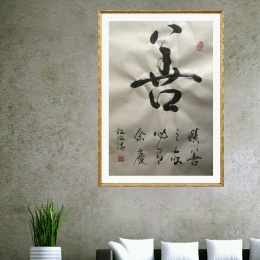 善
積善
之家
必有
余慶